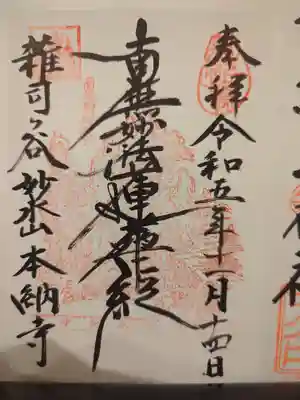 奉拝 令和五年十一月十四日
南無妙法蓮華経
雑司ヶ谷 妙永山本納寺